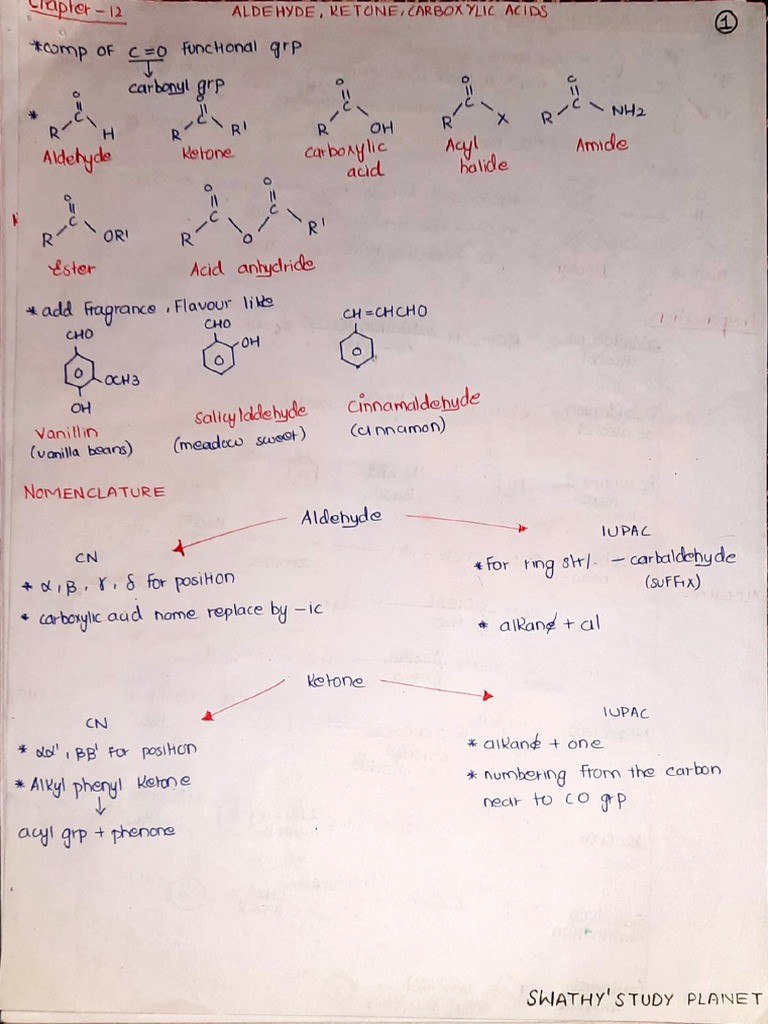 Chapter - 12
ALDEHYDE, KETONE, CARBOXYLIC ACIDS
1
* comp of C=O functional grp
carbonyl grp
*
O O O O C
|| || || || ||
C C C C C
R H R R' R OH R X R NH2
Aldehyde Ketone carboxylic acid Acyl halide Amide
O O O
|| || ||
C C C
R OR' R O R'
Ester Acid anhydride
* add fragrance, flavour like
CHO CHO CH=CHCHO
OH
OCH3
OH
Vanillin Salicylaldehyde Cinnamaldehyde
(vanilla beans) (meadow sweet) (cinnamon)
NOMENCLATURE
Aldehyde
CN IUPAC
* α, β, γ, δ for position
* carboxylic acid name replace by -ic
* for ring str/. - carbaldehyde
(SUFFIX)
* alkane + al
Ketone
CN IUPAC
* αα', ββ' for position
* Alkyl phenyl ketone
acyl grp + phenone
* alkane + one
* numbering from the carbon
near to CO grp
SWATHY'STUDY PLANET